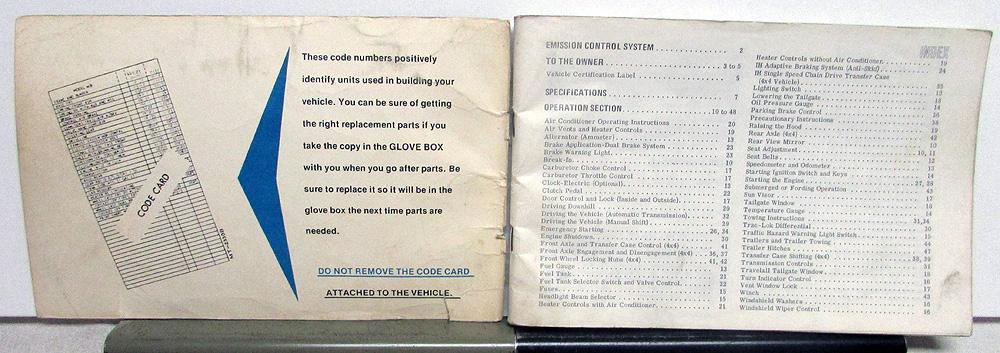 CODE CARD
These code numbers positively
identify units used in building your
vehicle. You can be sure of getting
the right replacement parts if you
take the copy in the GLOVE BOX
with you when you go after parts. Be
sure to replace it so it will be in the
glove box the next time parts are
needed.
DO NOT REMOVE THE CODE CARD
ATTACHED TO THE VEHICLE.
INDEX
EMISSION CONTROL SYSTEM . . . . . . . . . . . . . . 2
TO THE OWNER . . . . . . . . . . . . . . 3 to 5
Vehicle Certification Label . . . . . . . . . . . . . . 5
SPECIFICATIONS . . . . . . . . . . . . . . 7
OPERATION SECTION . . . . . . . . . . . . . . 10 to 48
Air Conditioner Operating Instructions . . . . . . . 20
Air Vents and Heater Controls . . . . . . . 19
Alternator (Ammeter) . . . . . . . 13
Brake Application-Dual Brake System . . . . . . . 23
Brake Warning Light . . . . . . . 23
Break-In . . . . . . . 10
Carburetor Choke Control . . . . . . . 17
Carburetor Throttle Control . . . . . . . 17
Clock-Electric (Optional) . . . . . . . 13
Clutch Pedal . . . . . . . 22
Door Control and Lock (Inside and Outside) . . . . . . . 17
Driving Downhill . . . . . . . 29
Driving the Vehicle (Automatic Transmission) . . . . . . . 32
Driving the Vehicle (Manual Shift) . . . . . . . 29
Emergency Starting . . . . . . . 26, 34
Engine Shutdown . . . . . . . 30
Front Axle and Transfer Case Control (4x4) . . . . . . . 41
Front Axle Engagement and Disengagement (4x4) . . 36, 37
Front Wheel Locking Hubs (4x4) . . . . . . . 41, 42
Fuel Gauge . . . . . . . 13
Fuel Tank . . . . . . . 21
Fuel Tank Selector Switch and Valve Control . . . . . . . 22
Fuses . . . . . . . 15
Headlight Beam Selector . . . . . . . 15
Heater Controls with Air Conditioner . . . . . . . 21
Heater Controls without Air Conditioner . . . . . . . 19
IH Adaptive Braking System (Anti-Skid) . . . . . . . 24
IH Single Speed Chain Drive Transfer Case
(4x4 Vehicle) . . . . . . . 35
Lighting Switch . . . . . . . 13
Lowering the Tailgate . . . . . . . 18
Oil Pressure Gauge . . . . . . . 14
Parking Brake Control . . . . . . . 26
Precautionary Instructions . . . . . . . 38
Raising the Hood . . . . . . . 19
Rear Axle (4x4) . . . . . . . 42
Rear View Mirror . . . . . . . 10
Seat Adjustment . . . . . . . 10, 11
Seat Belts . . . . . . . 12
Speedometer and Odometer . . . . . . . 13
Starting Ignition Switch and Keys . . . . . . . 14
Starting the Engine . . . . . . . 27, 28
Submerged or Fording Operation . . . . . . . 43
Sun Visor . . . . . . . 17
Tailgate Window . . . . . . . 18
Temperature Gauge . . . . . . . 14
Towing Instructions . . . . . . . 33,34
Trac-Lok Differential . . . . . . . 30
Traffic Hazard Warning Light Switch . . . . . . . 15
Trailers and Trailer Towing . . . . . . . 44
Trailer Hitches . . . . . . . 47
Transfer Case Shifting (4x4) . . . . . . . 38, 39
Transmission Controls . . . . . . . 31
Travelall Tailgate Window . . . . . . . 18
Turn Indicator Control . . . . . . . 16
Vent Window Lock . . . . . . . 17
Winch . . . . . . . 43
Windshield Washers . . . . . . . 16
Windshield Wiper Control . . . . . . . 16